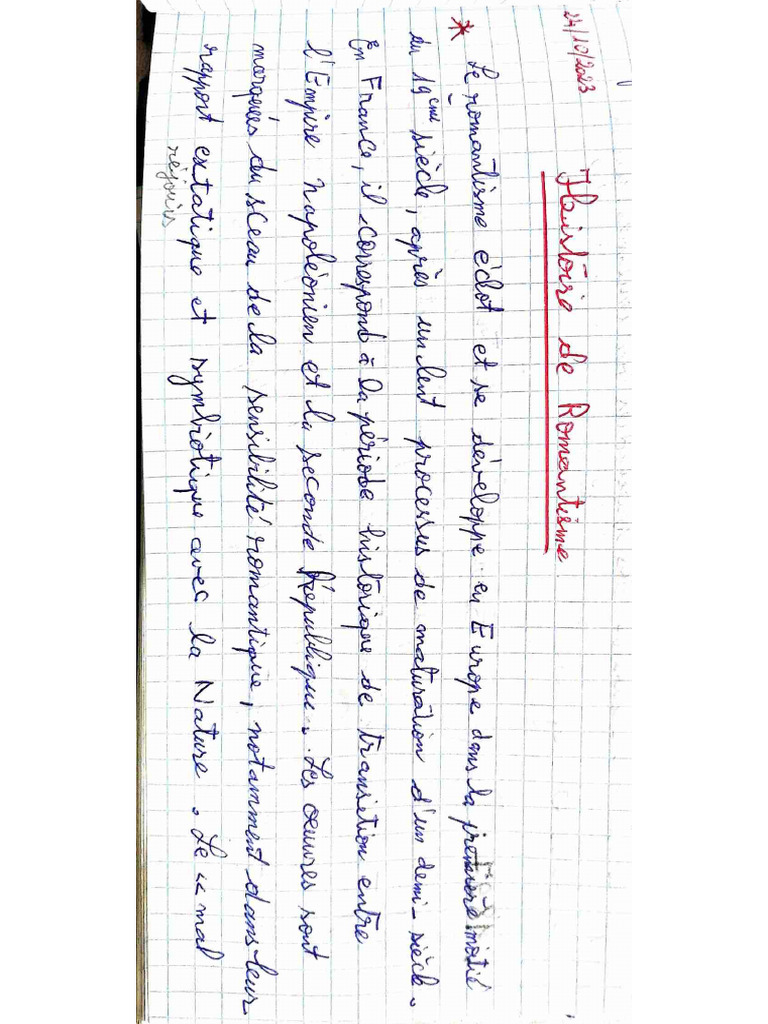 24/10/2023
Histoire de Romantisme
* Le romantisme éclot et se développe en Europe dans la première moitié
du 19ème siècle, après un lent processus de maturation d'un demi-siècle.
En France, il correspond à la période historique de transition entre
l'Empire napoléonien et la seconde République. Les œuvres sont
marquées du sceau de la sensibilité romantique, notamment dans leur
rapport extatique et symbiotique avec la Nature. Le « mal
réjouis